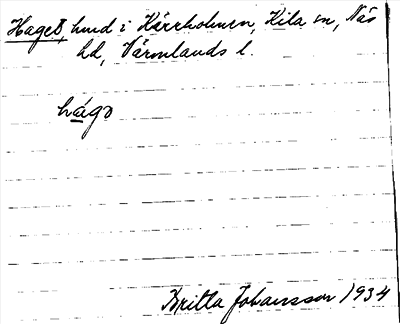 Haget, hmd i Kärrholmen, Kila sn, Näs
hd, Värmlands l.
hágə
Britta Johansson 1934